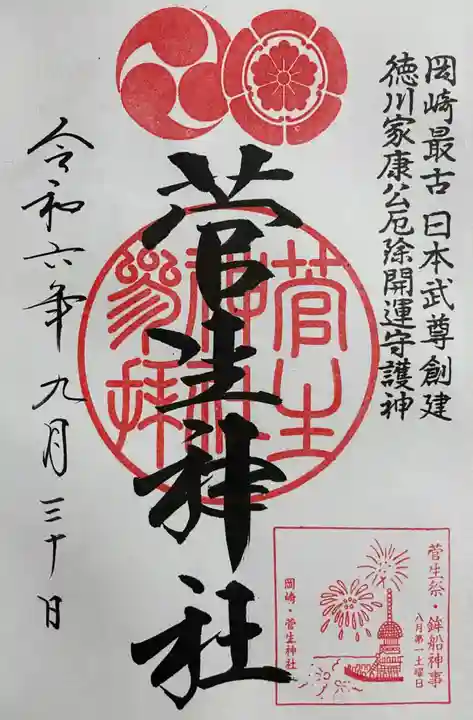 岡崎最古 日本武尊創建
徳川家康公厄除開運守護神
菅生神社
菅生
神社
参拝
令和六年九月三十日
菅生祭・鉾船神事
八月第一土曜日
岡崎・菅生神社